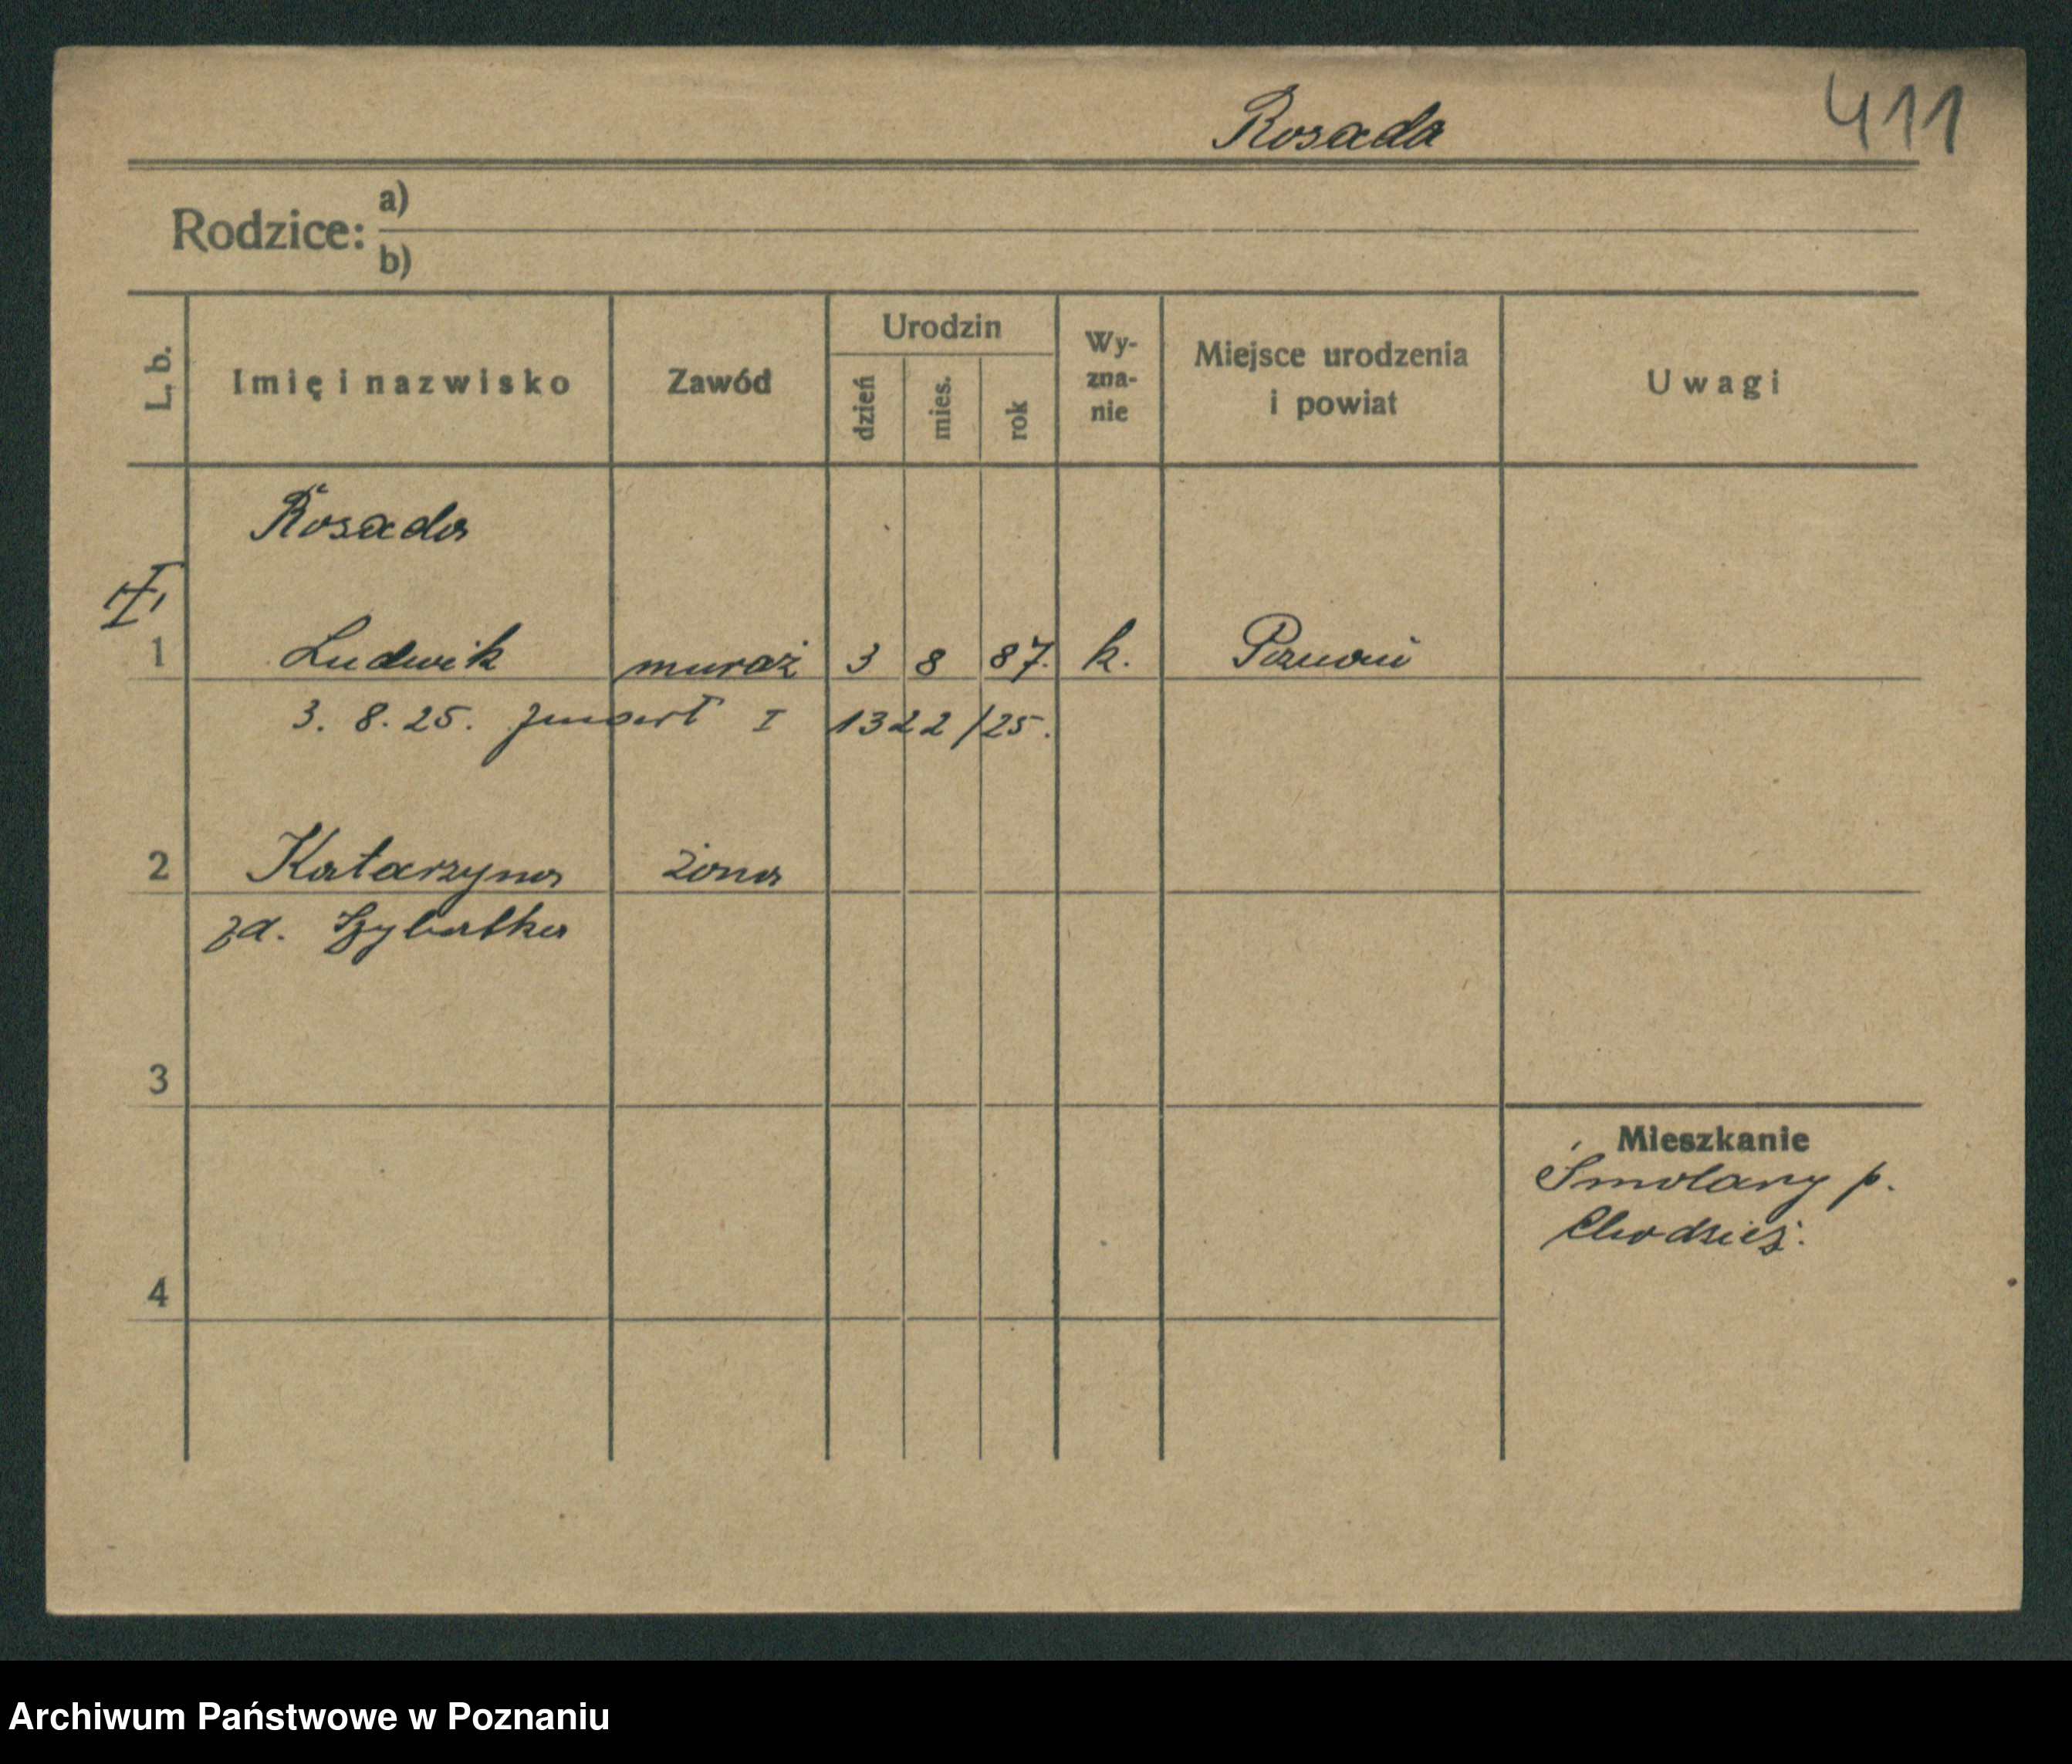 Rosada 411
Rodzice: a)
b)
L. b. Imię i nazwisko Zawód Urodzin dzień mies. rok Wy-zna-nie Miejsce urodzenia i powiat Uwagi
Rosada
1 Ludwik muraż 3 8 87. k. Poznań
3. 8. 25. zmarł I 1322/25.
2 Katarzyna żona
zd.
3
Mieszkanie
Smolary p.
Chodzież.
4
Archiwum Państwowe w Poznaniu